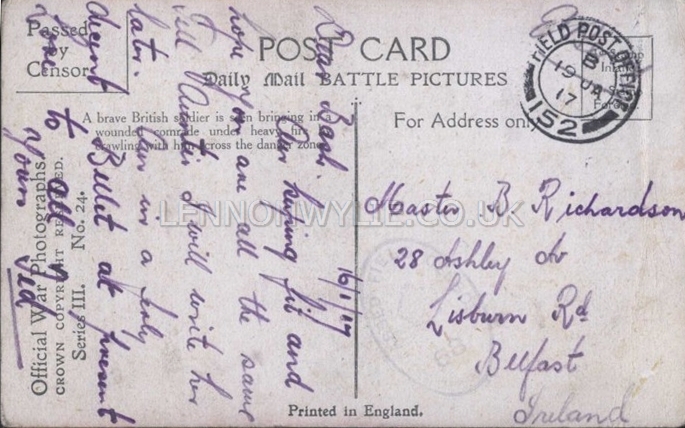 Passed
by
Censor.
POST CARD
Daily Mail BATTLE PICTURES
A brave British soldier is seen bringing in
wounded comrade under heavy fire
crawling with him across the danger zone
Official War Photographs.
CROWN COPYRIGHT RESERVED.
Series III. No. 24.
Printed in England.
16/1/17
Dear Basil.
Am keeping fit and
hope you are all the same
Tell Auntie I will write her
later. Am in a jolly
decent Billet at present
Love to all
Your Vid
For Address only
FIELD POST OFFICE
B
19 JA
17
152
Master B. Richardson
28 Ashley Av
Lisburn Rd
Belfast
Ireland
FIELD
LENNONWYLIE.CO.UK